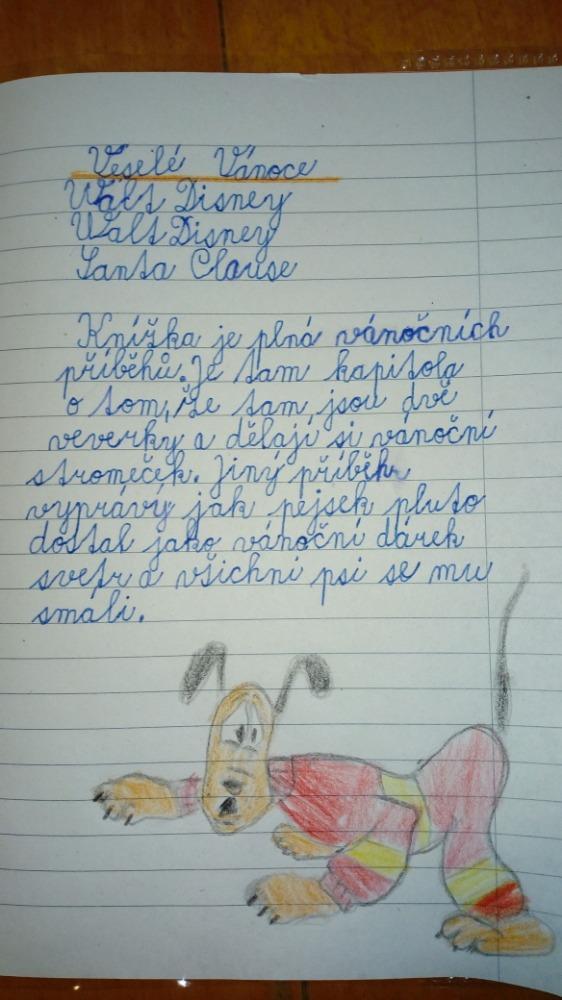 Veselé Vánoce
Walt Disney
Walt Disney
Santa Clause
Knížka je plná vánočních
příběhů. Je tam kapitola
o tom, že tam jsou dvě
veverky a dělají si vánoční
stromeček. Jiný příběh
vyprávý jak pejsek pluto
dostal jako vánoční dárek
svetr a všichni psi se mu
smali.